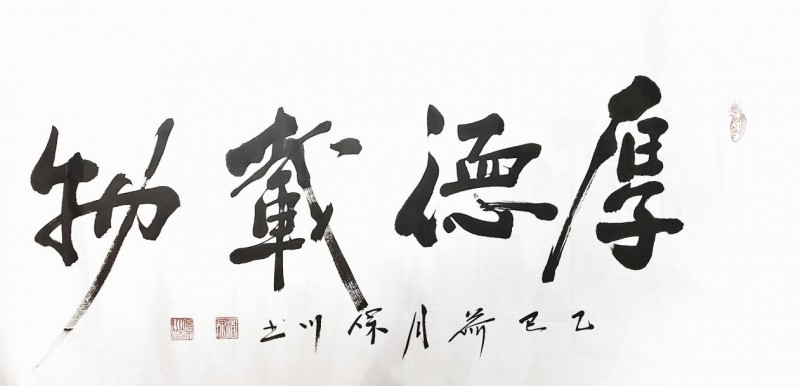 厚德載物
乙巳荷月保川书